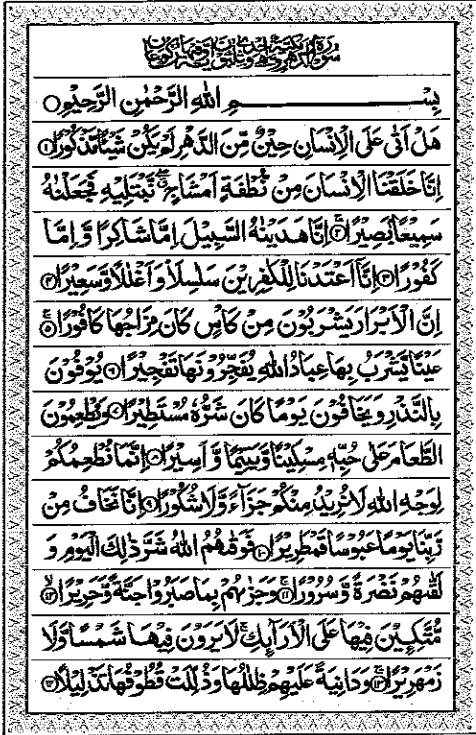 بِسْمِ اللّٰهِ الرَّحْمٰنِ الرَّحِيْمِ
هَلْ اَتٰى عَلَى الْاِنْسَانِ حِيْنٌ مِّنَ الدَّهْرِ لَمْ يَكُنْ شَيْئًا مَّذْكُوْرًا ۝۱
اِنَّا خَلَقْنَا الْاِنْسَانَ مِنْ نُّطْفَةٍ اَمْشَاجٍ ۖ نَّبْتَلِيْهِ فَجَعَلْنٰهُ
سَمِيْعًۢا بَصِيْرًا ۝۲ اِنَّا هَدَيْنٰهُ السَّبِيْلَ اِمَّا شَاكِرًا وَّ اِمَّا
كَفُوْرًا ۝۳ اِنَّاۤ اَعْتَدْنَا لِلْكٰفِرِيْنَ سَلٰسِلَا۟ وَ اَغْلٰلًا وَّ سَعِيْرًا ۝۴
اِنَّ الْاَبْرَارَ يَشْرَبُوْنَ مِنْ كَاْسٍ كَانَ مِزَاجُهَا كَافُوْرًا ۝۵
عَيْنًا يَّشْرَبُ بِهَا عِبَادُ اللّٰهِ يُفَجِّرُوْنَهَا تَفْجِيْرًا ۝۶ يُوْفُوْنَ
بِالنَّذْرِ وَ يَخَافُوْنَ يَوْمًا كَانَ شَرُّهٗ مُسْتَطِيْرًا ۝۷ وَ يُطْعِمُوْنَ
الطَّعَامَ عَلٰى حُبِّهٖ مِسْكِيْنًا وَّ يَتِيْمًا وَّ اَسِيْرًا ۝۸ اِنَّمَا نُطْعِمُكُمْ
لِوَجْهِ اللّٰهِ لَا نُرِيْدُ مِنْكُمْ جَزَآءً وَّ لَا شُكُوْرًا ۝۹ اِنَّا نَخَافُ مِنْ
رَّبِّنَا يَوْمًا عَبُوْسًا قَمْطَرِيْرًا ۝۱۰ فَوَقٰىهُمُ اللّٰهُ شَرَّ ذٰلِكَ الْيَوْمِ وَ
لَقّٰىهُمْ نَضْرَةً وَّ سُرُوْرًا ۝۱۱ وَ جَزٰىهُمْ بِمَا صَبَرُوْا جَنَّةً وَّ حَرِيْرًا ۝۱۲
مُّتَّكِـِٕيْنَ فِيْهَا عَلَى الْاَرَآىِٕكِ ۚ لَا يَرَوْنَ فِيْهَا شَمْسًا وَّ لَا
زَمْهَرِيْرًا ۝۱۳ وَ دَانِيَةً عَلَيْهِمْ ظِلٰلُهَا وَ ذُلِّلَتْ قُطُوْفُهَا تَذْلِيْلًا ۝۱۴